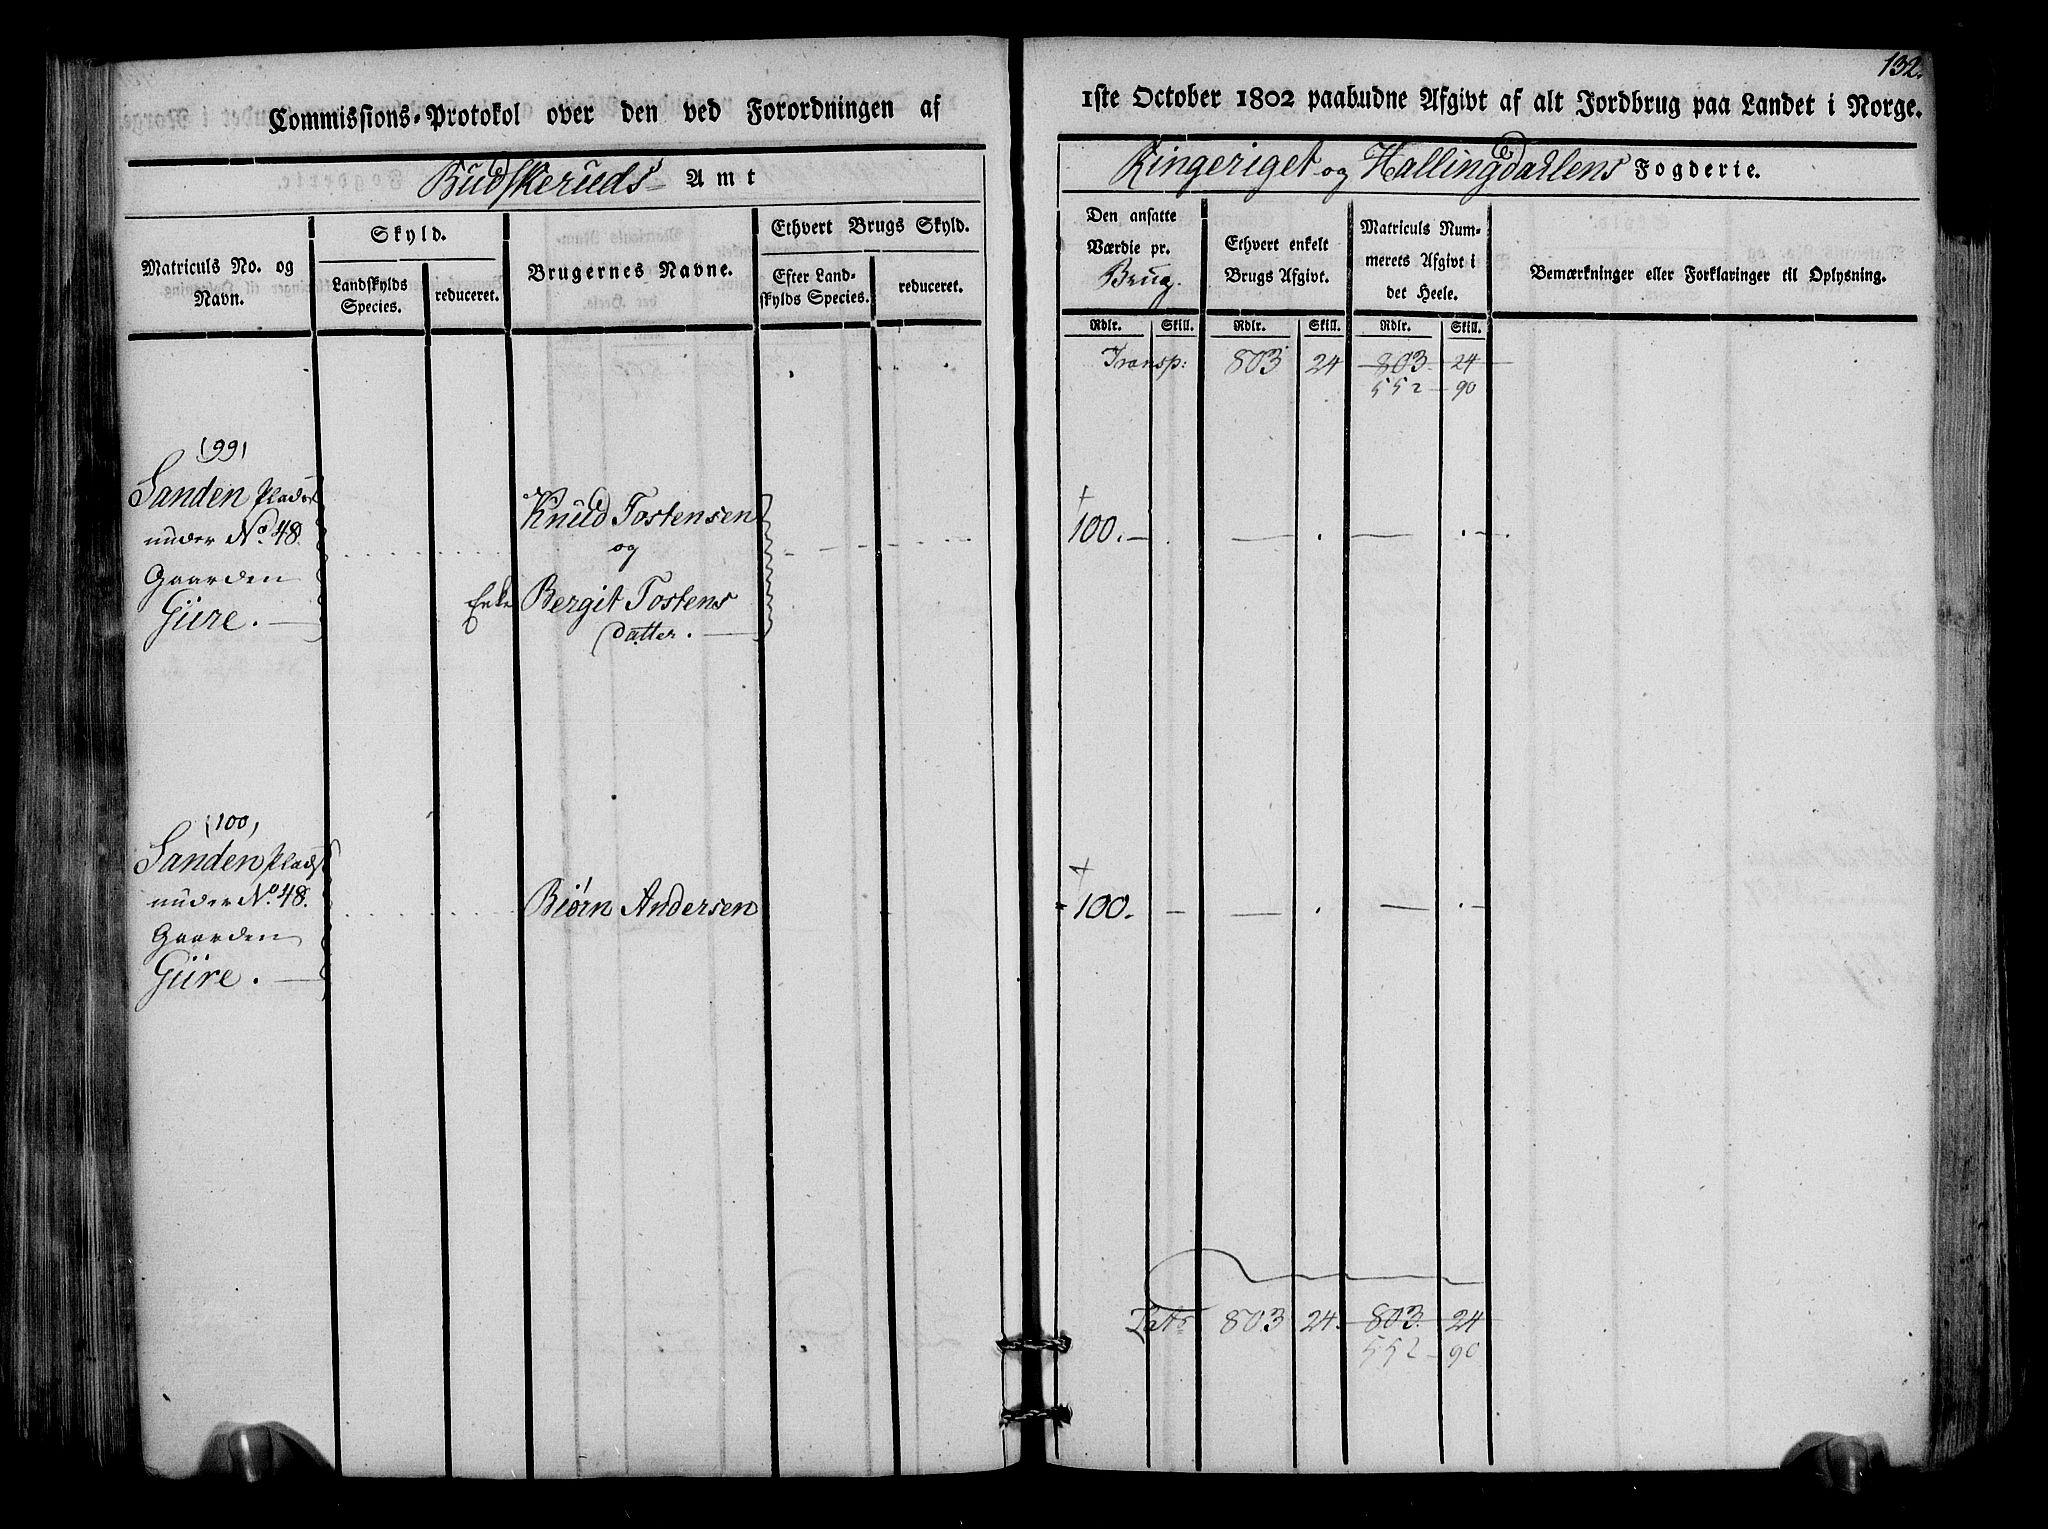 132.
Commissions-Protokol over den ved Forordningen af
Budskeruds Amt
Matriculs No. og Navn.
Skyld.
Landskylds Species.
reduceret.
Brugernes Navne.
Ethvert Brugs Skyld.
Efter Landskylds Species.
reduceret.
(99)
Sanden Plads
under No. 48.
Gaarden
Güre.
Knud Tostensen
og
Enke Bergit Tostens
datter.
(100)
Sanden Plads
under No. 48.
Gaarden
Güre.
Biørn Andersen
1ste October 1802 paabudne Afgivt af alt Jordbrug paa Landet i Norge.
Ringeriget og Hallingdahlens Fogderie.
Den ansatte
Værdie pr.
Brug.
Ethvert enkelt
Brugs Afgivt.
Matriculs Num-
merets Afgivt i
det Heele.
Bemærkninger eller Forklaringer til Oplysning.
Rdlr. Skill. Rdlr. Skill. Rdlr. Skill.
Transp: 803 24 803 24
552 90
100. — — . — . —
100. — — . — . —
Lats 803 24. 803 24
552 90